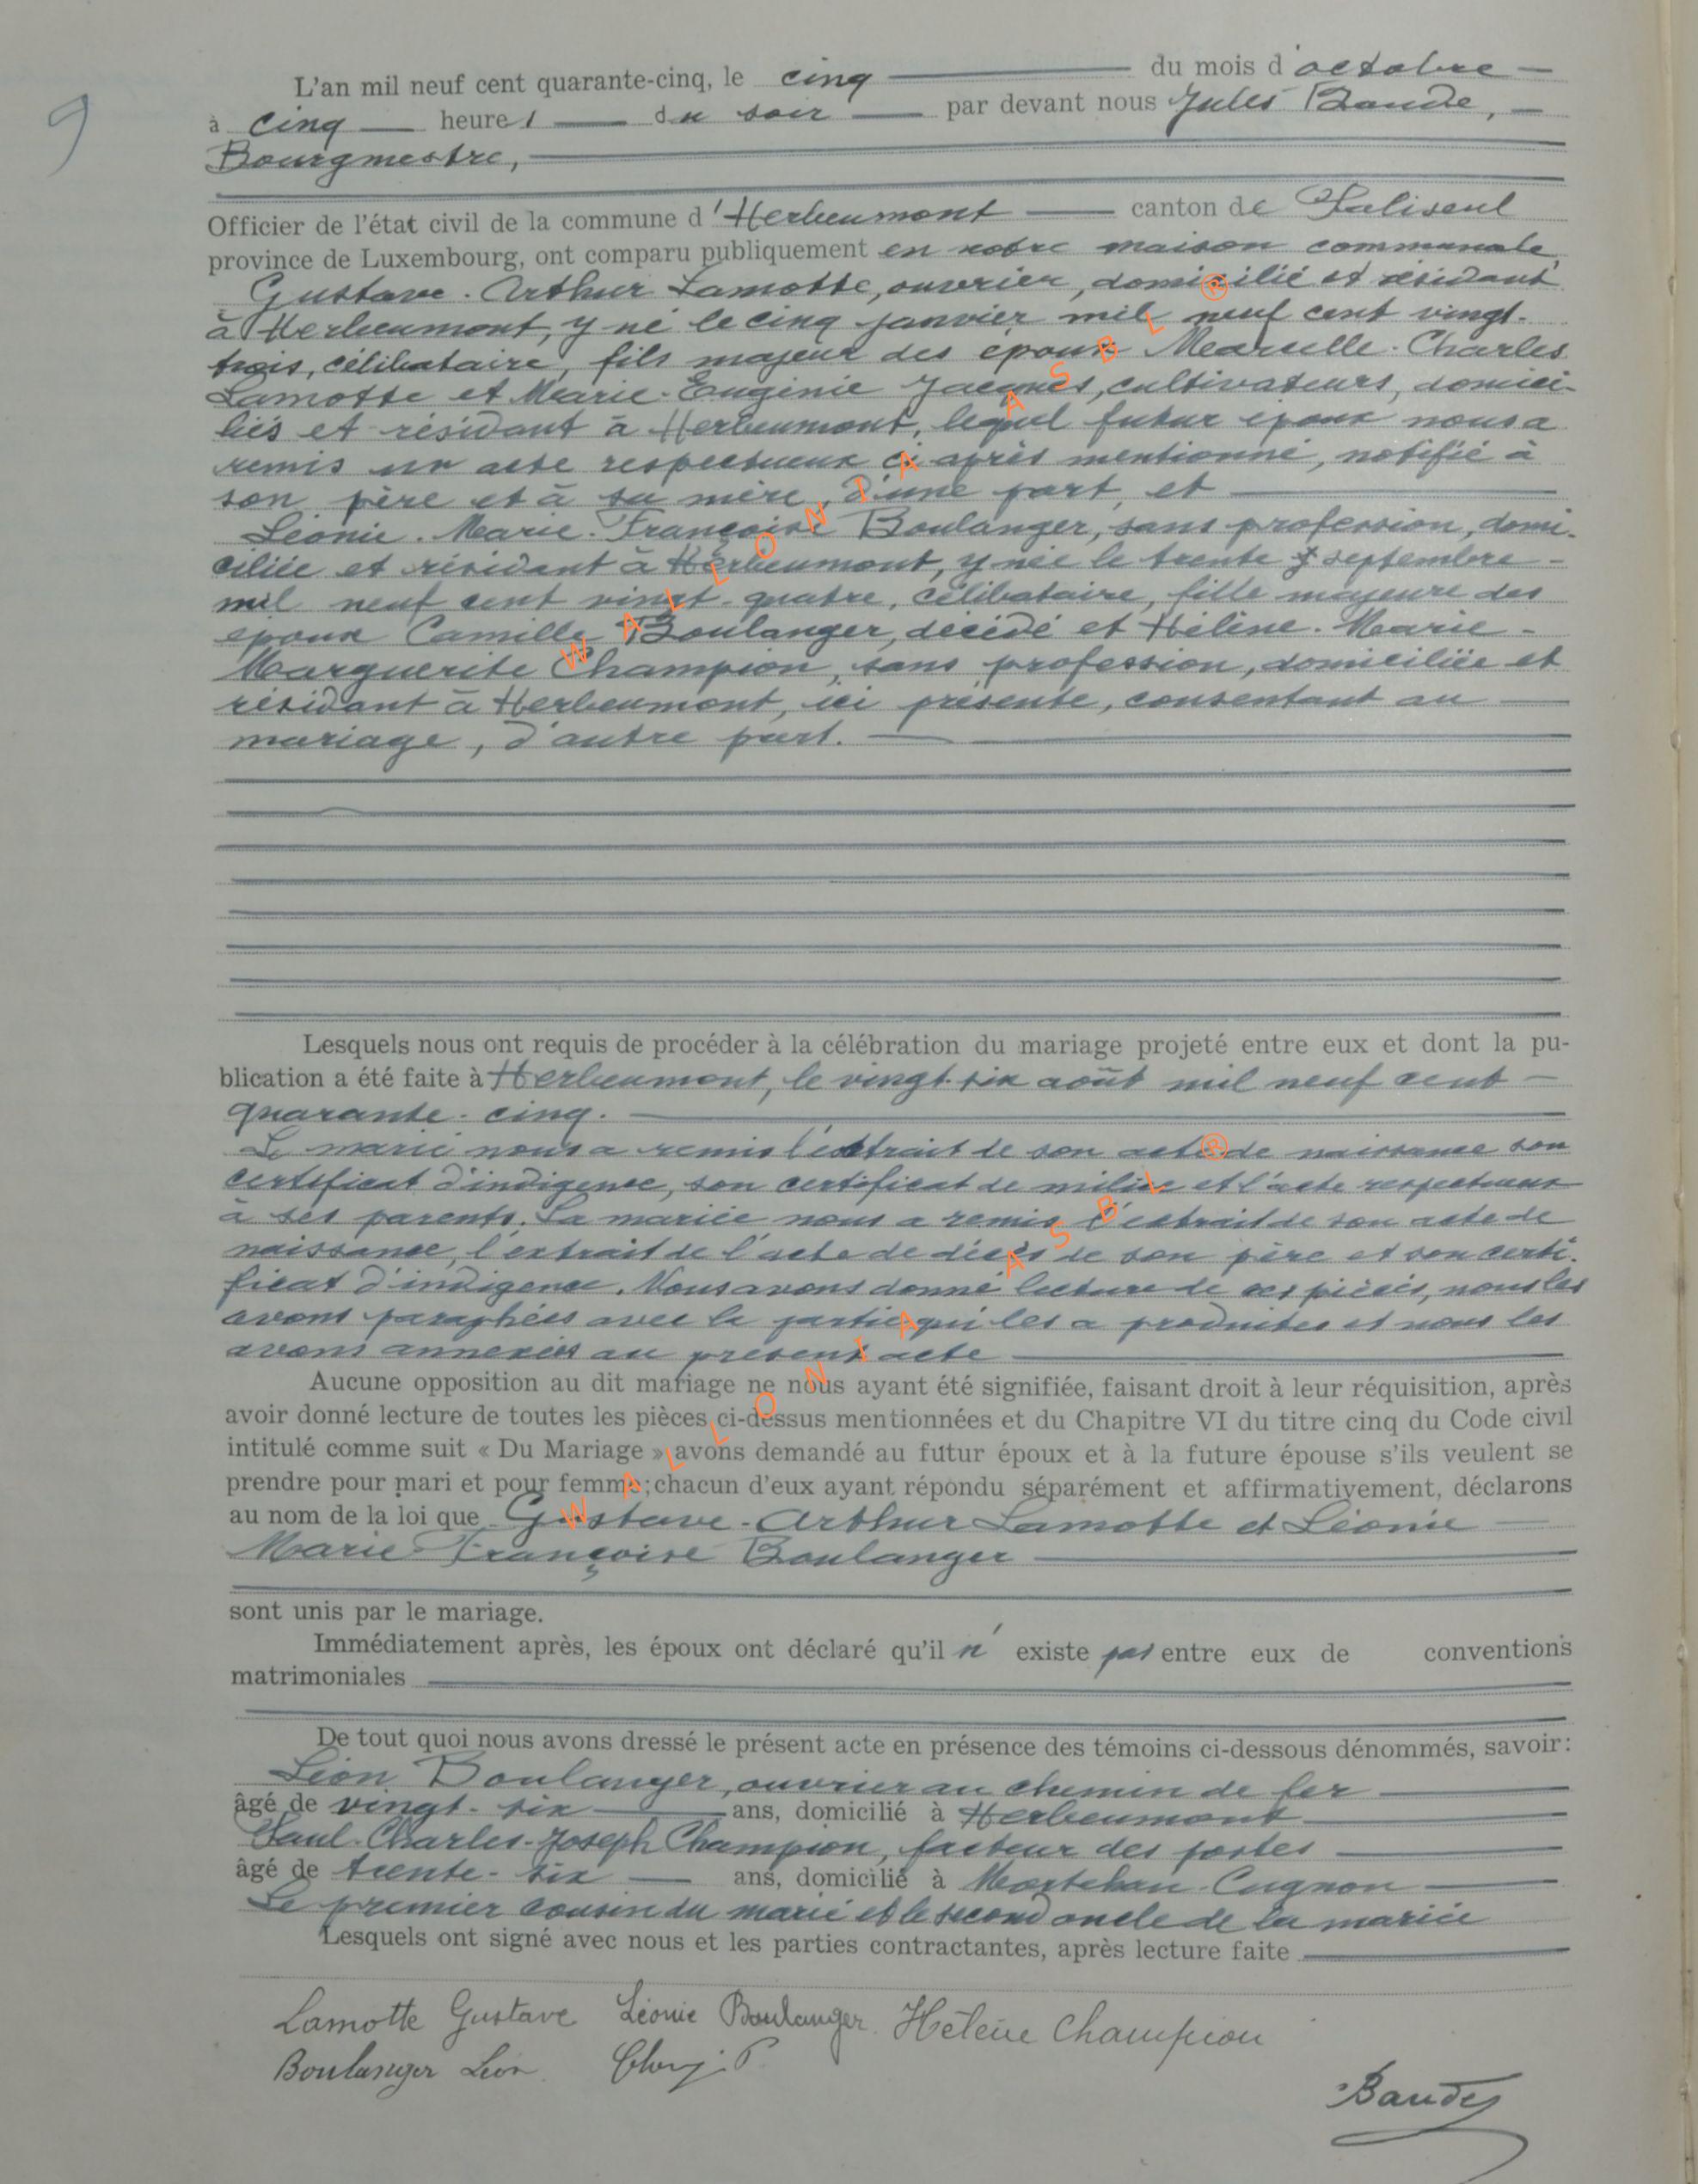 9
L'an mil neuf cent quarante-cinq, le cinq du mois d'octobre
à cinq heures du soir par devant nous Jules Baude,
Bourgmestre,
Officier de l'état civil de la commune d'Herbeumont canton de Paliseul
province de Luxembourg, ont comparu publiquement en notre maison communale
Gustave-Arthur Lamotte, ouvrier, domicilié et résidant
à Herbeumont, y né le cinq janvier mil neuf cent vingt-
trois, célibataire, fils majeur des époux Marcelle-Charles
Lamotte et Marie-Eugénie Jacques, cultivateurs, domici-
liés et résidant à Herbeumont, lequel futur époux nous a
remis un acte respectueux ci après mentionné, notifié à
son père et à sa mère, d'une part, et
Léonie-Marie-Françoise Boulanger, sans profession, domi-
ciliée et résidant à Herbeumont, y née le trente septembre
mil neuf cent vingt-quatre, célibataire, fille majeure des
époux Camille Boulanger, décédé et Hélène-Marie-
Marguerite Champion, sans profession, domiciliée et
résidant à Herbeumont, ici présente, consentant au
mariage, d'autre part.
Lesquels nous ont requis de procéder à la célébration du mariage projeté entre eux et dont la pu-
blication a été faite à Herbeumont, le vingt-six août mil neuf cent
quarante-cinq.
Le marié nous a remis l'extrait de son acte de naissance son
certificat d'indigence, son certificat de milice et l'acte respectueux
à ses parents. La mariée nous a remis l'extrait de son acte de
naissance, l'extrait de l'acte de décès de son père et son certi-
ficat d'indigence. Nous avons donné lecture de ces pièces, nous les
avons paraphées avec la partie qui les a produites et nous les
avons annexées au présent acte
Aucune opposition au dit mariage ne nous ayant été signifiée, faisant droit à leur réquisition, après
avoir donné lecture de toutes les pièces ci-dessus mentionnées et du Chapitre VI du titre cinq du Code civil
intitulé comme suit « Du Mariage » avons demandé au futur époux et à la future épouse s'ils veulent se
prendre pour mari et pour femme; chacun d'eux ayant répondu séparément et affirmativement, déclarons
au nom de la loi que Gustave-Arthur Lamotte et Léonie
Marie Françoise Boulanger
sont unis par le mariage.
Immédiatement après, les époux ont déclaré qu'il n' existe pas entre eux de conventions
matrimoniales
De tout quoi nous avons dressé le présent acte en présence des témoins ci-dessous dénommés, savoir:
Léon Boulanger, ouvrier au chemin de fer
âgé de vingt-six ans, domicilié à Herbeumont
Paul-Charles-Joseph Champion, facteur des postes
âgé de trente-six ans, domicilié à Mortehan-Cugnon
Le premier cousin du marié et le second oncle de la mariée
Lesquels ont signé avec nous et les parties contractantes, après lecture faite
Lamotte Gustave Léonie Boulanger Hélène Champion
Boulanger Léon
Baude
WALLONIA ASBL ®
WALLONIA ASBL ®